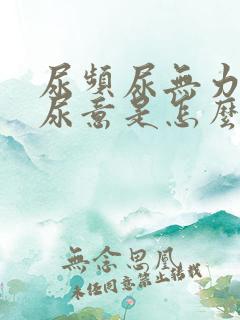 尿頻尿無力
尿意是怎麼
無念思凰
未經同意禁止轉載